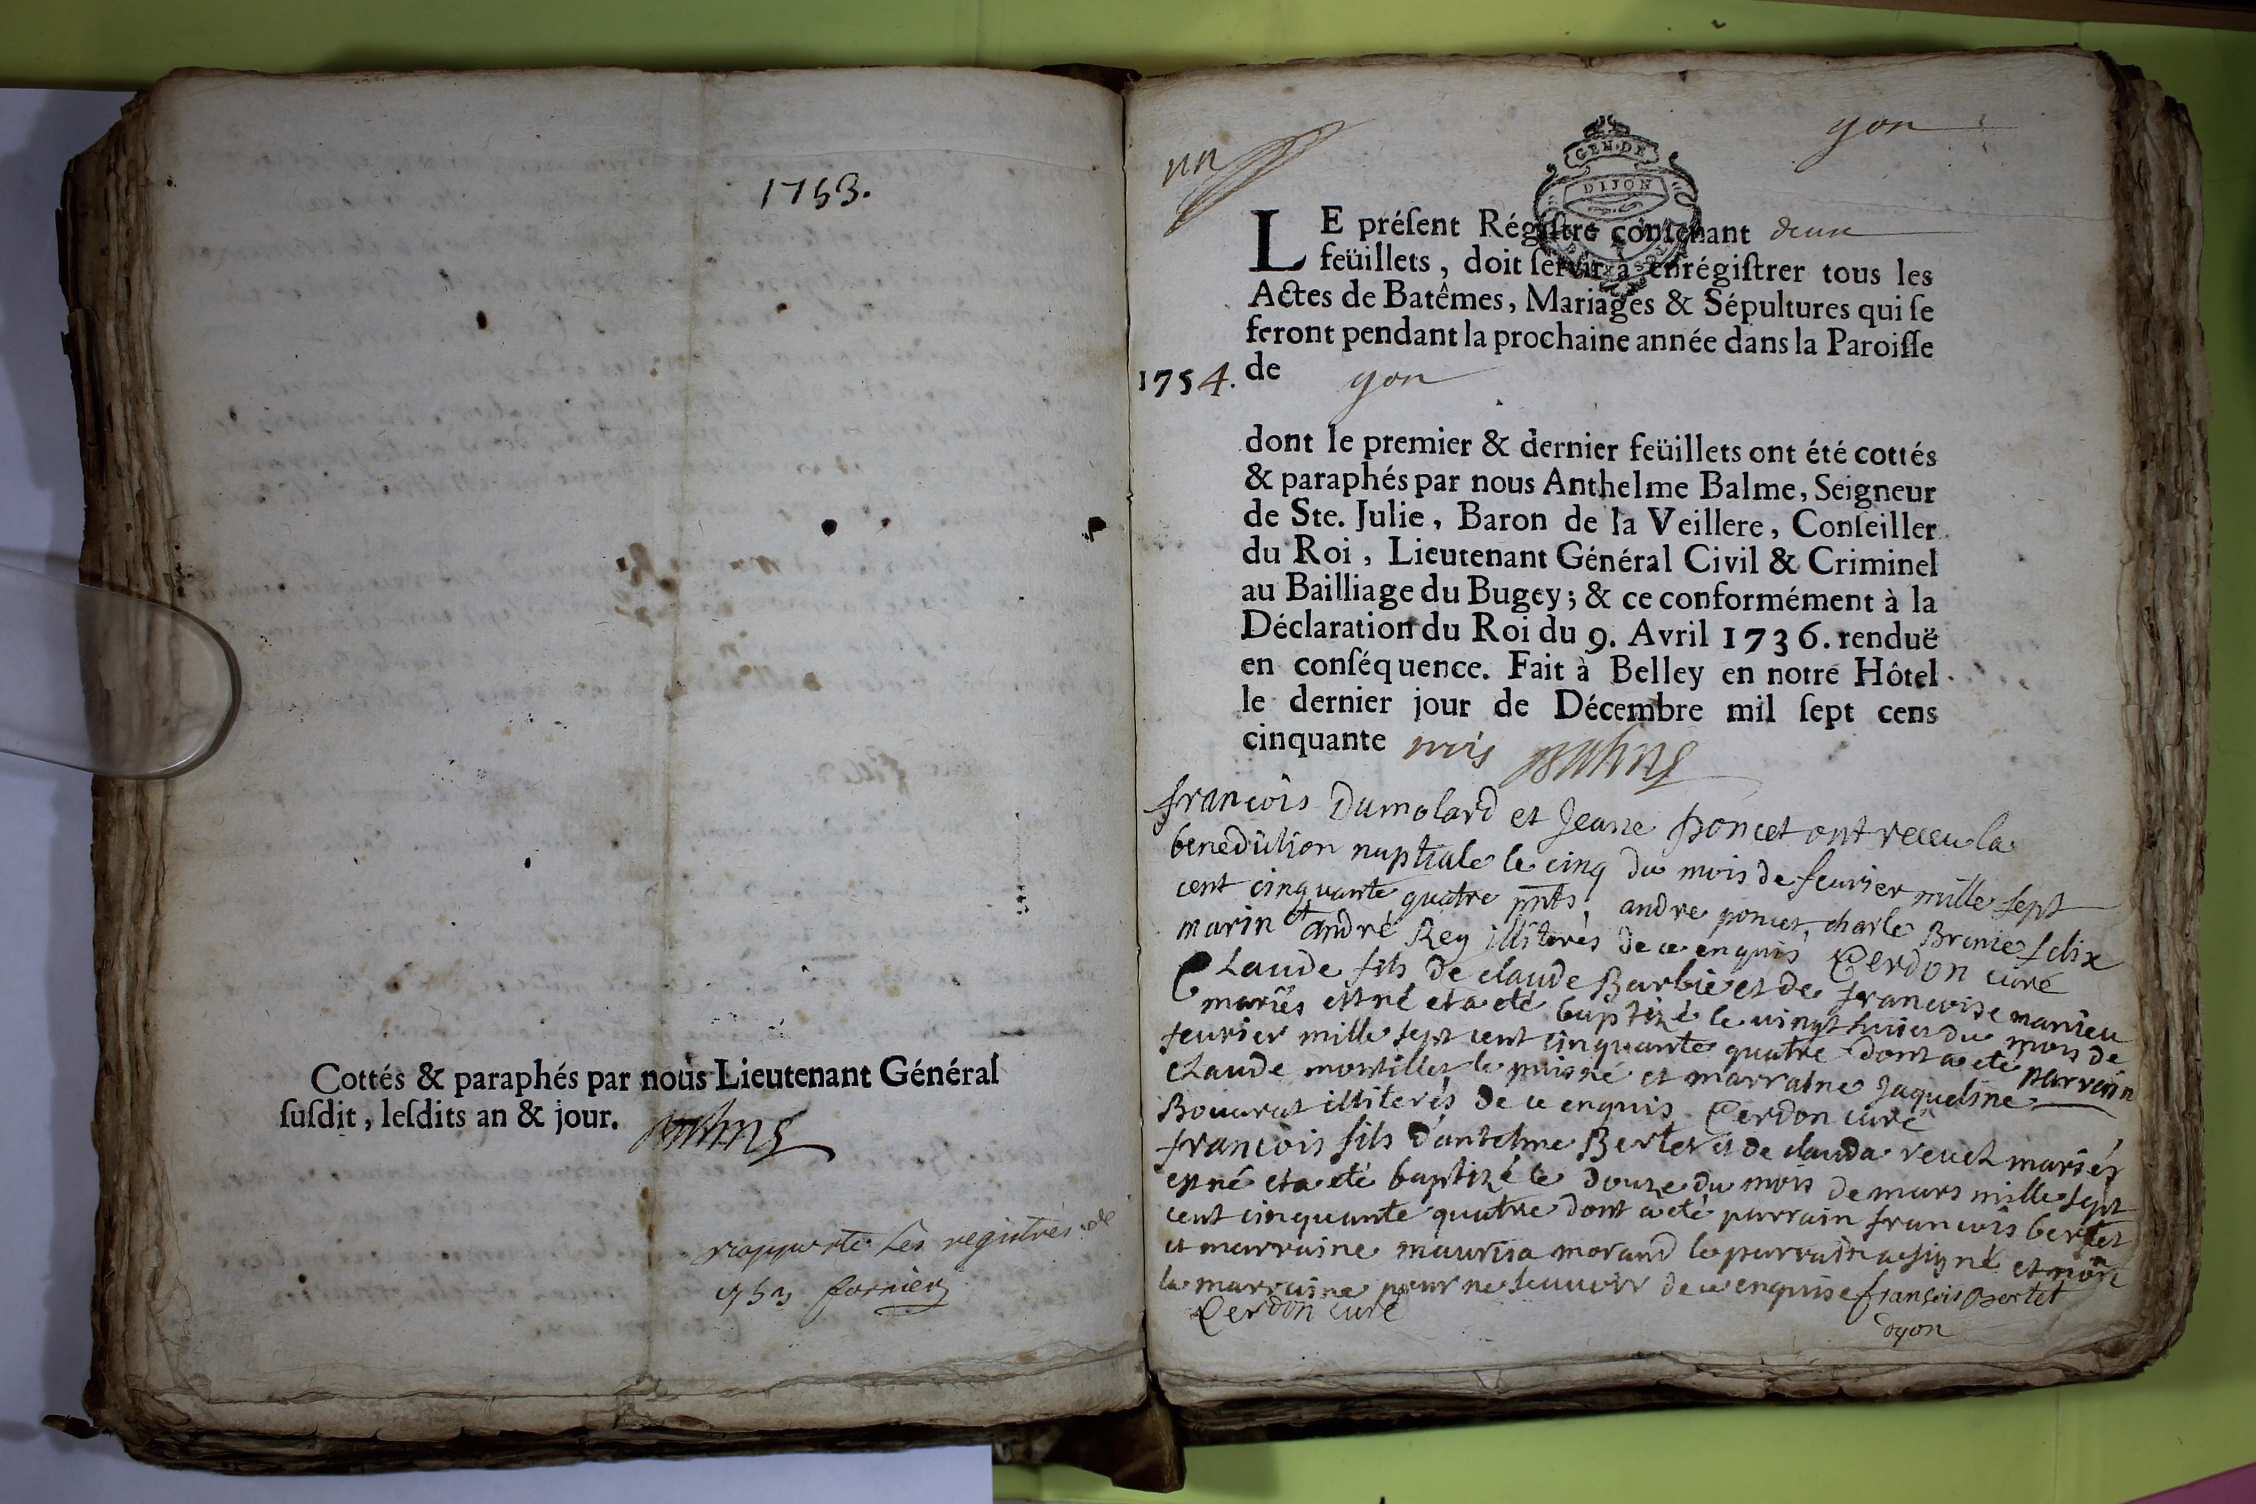 1753.
Cottés & paraphés par nous Lieutenant Général
ſuſdit, leſdits an & jour.
rapporté les registres de
un
yon
GEN·DE
DIJON
LE préſent Régiſtre contenant deux
feüillets, doit ſervir à enrégiſtrer tous les
Actes de Batêmes, Mariages & Sépultures qui ſe
feront pendant la prochaine année dans la Paroiſſe
1754. de yon
dont le premier & dernier feüillets ont été cottés
& paraphés par nous Anthelme Balme, Seigneur
de Ste. Julie, Baron de la Veillere, Conſeiller
du Roi, Lieutenant Général Civil & Criminel
au Bailliage du Bugey; & ce conformément à la
Déclaration du Roi du 9. Avril 1736. renduë
en conſéquence. Fait à Belley en notre Hôtel
le dernier jour de Décembre mil ſept cens
cinquante trois
françois Dumolard et Jeane poncet ont receu la
benediction nuptiale le cinq du mois de feurier mille sept
cent cinquante quatre pnts andre poncet, charle felix
marin et andré Rey illiterés de ce enquis Cerdon curé
Claude fils de claude Barbié et de francoise manieu
mariés est né et a eté baptizé le vingt huit du mois de
feurier mille sept cent cinquante quatre dont a eté parrain
claude montillet le puisné et marraine Jaqueline
Bouurat illiterés de ce enquis Cerdon curé
françois fils d'antelme Bertet et de clauda reuel mariés
est né et a eté baptizé le douze du mois de mars mille sept
cent cinquante quatre dont a eté parrain francois bertet
et marraine maurisa morand le parrain a signé et non
la marraine pour ne scauoir de ce enquise françois Bertet
Cerdon curé
dyon